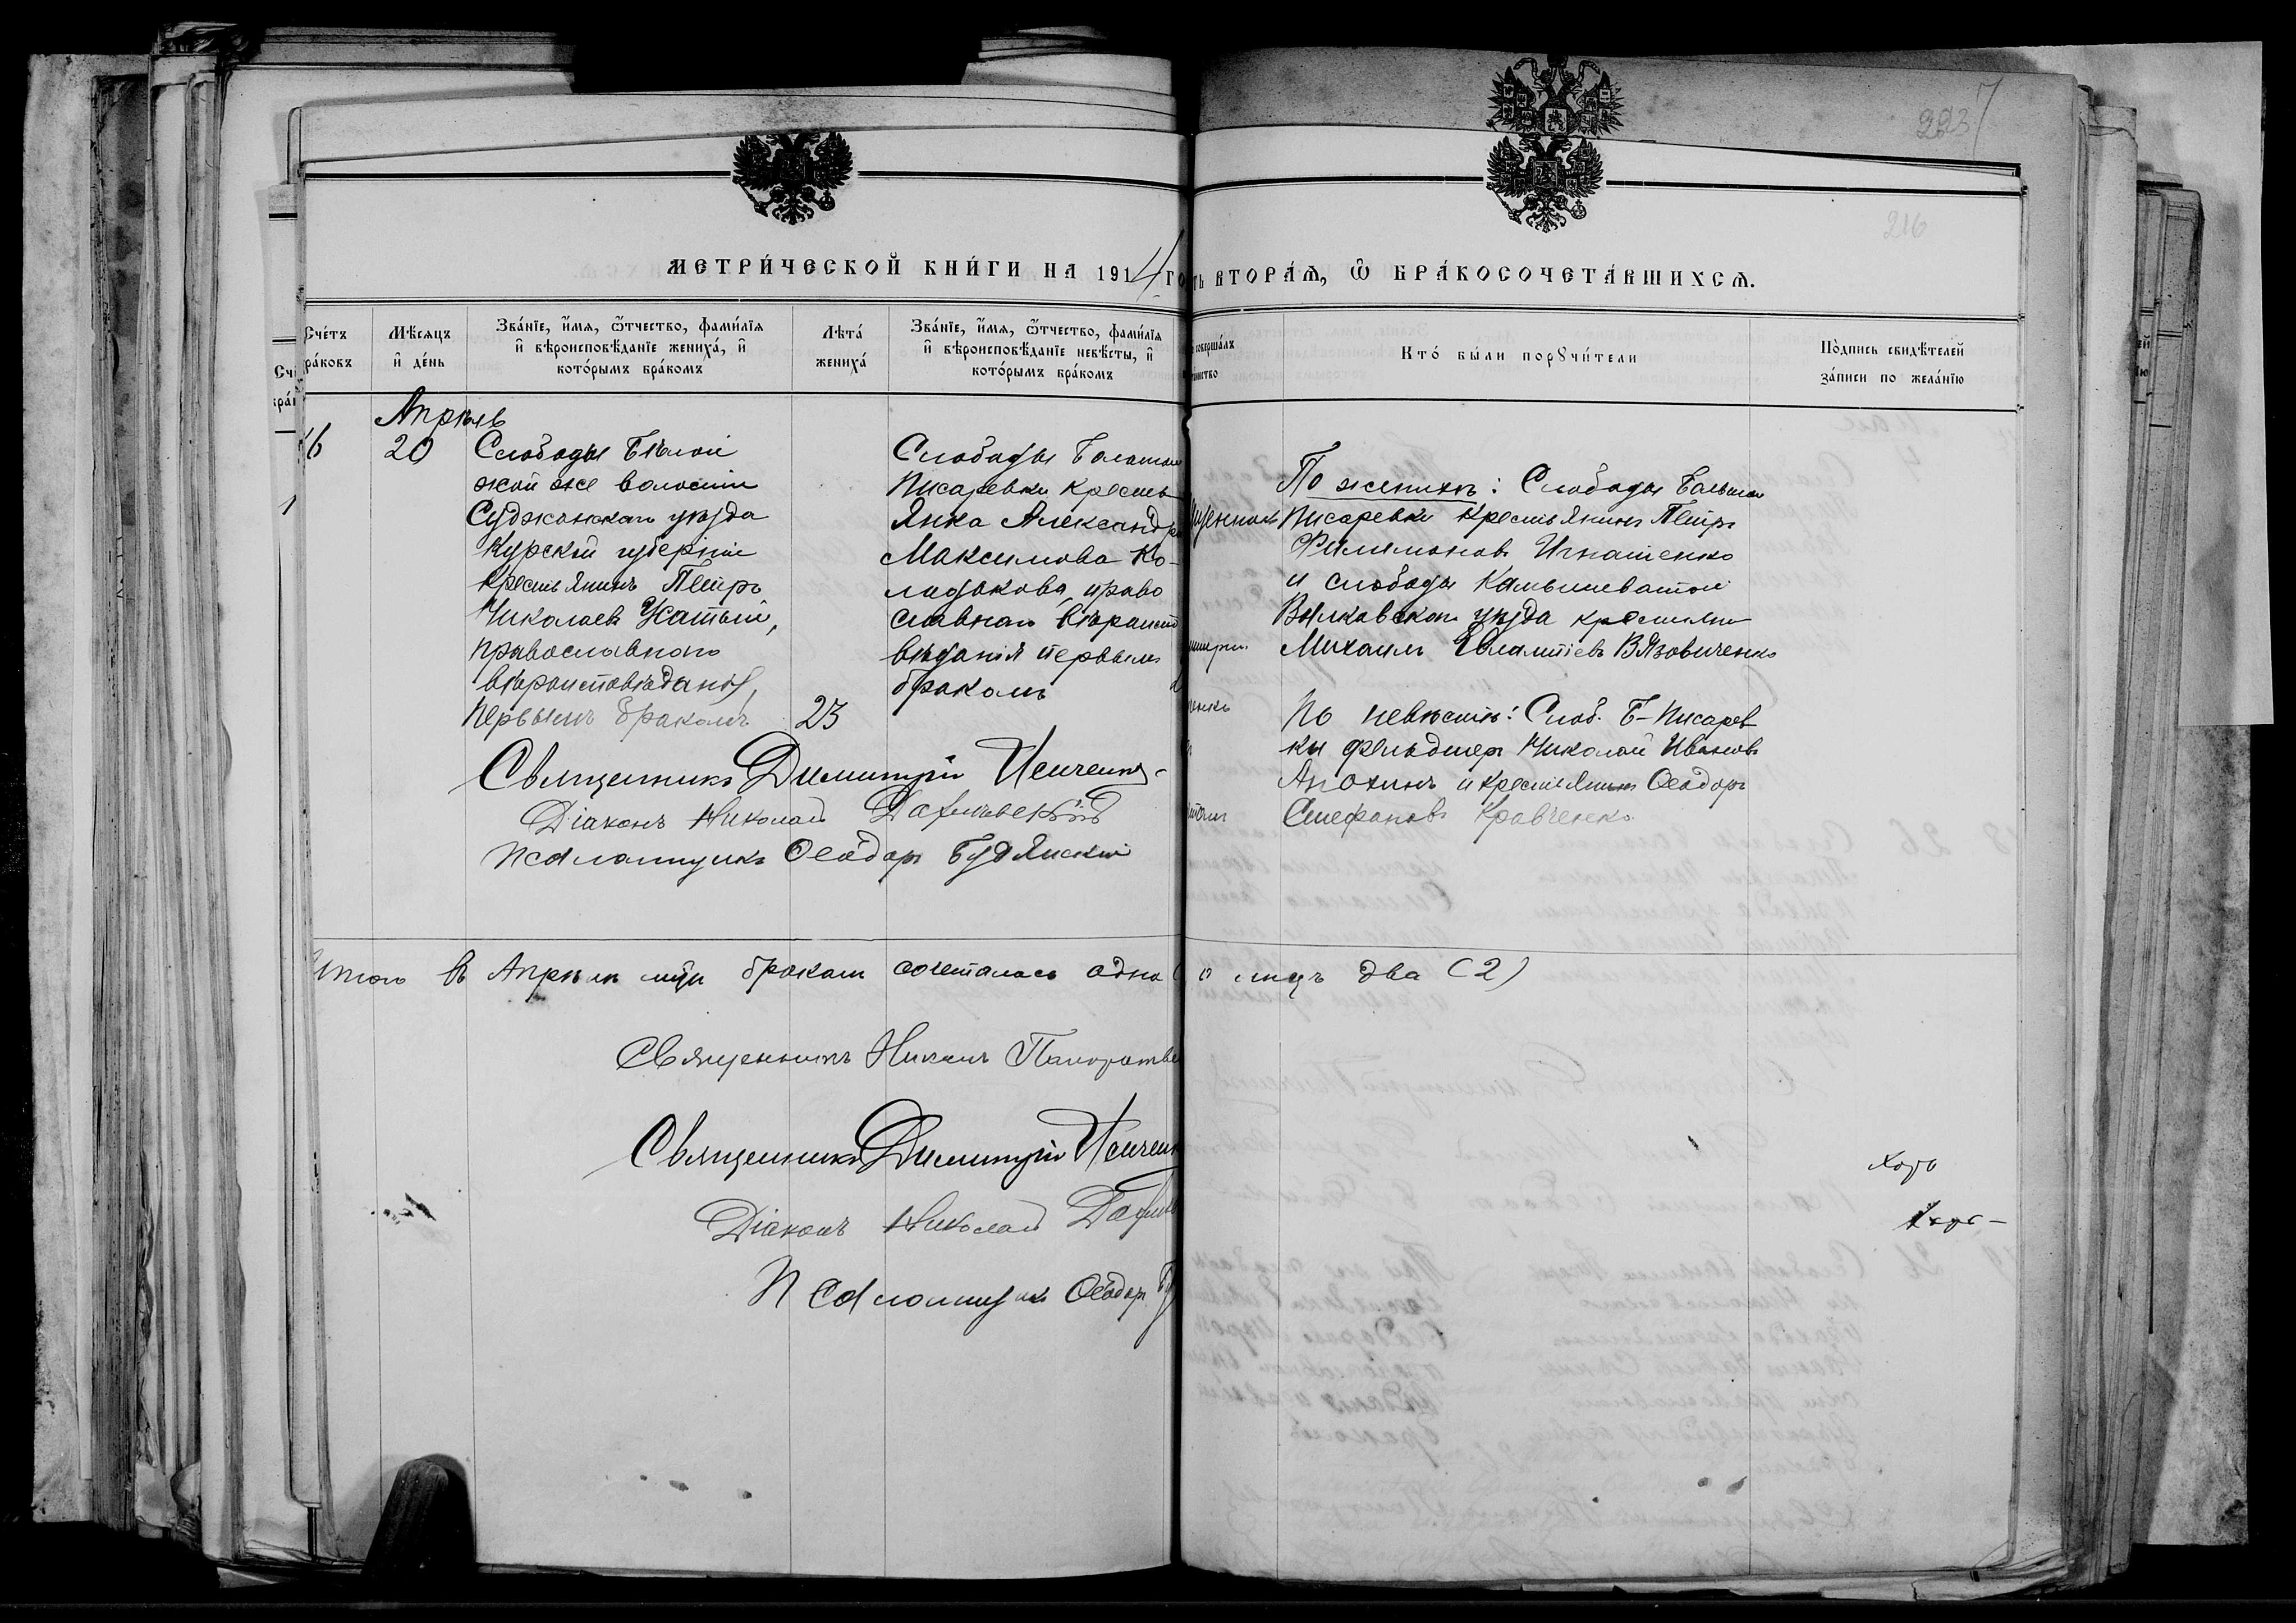 223
216
МЕТРИ́ЧЕСКОЙ КНИ́ГИ НА 1914 ГО
ТЬ ВТОРА́Ѧ, Ѿ БРАКОСОЧЕТА́ВШИХСѦ.
Сче́тъ
ра́ковъ
Мѣ́сяцъ
и҆ де́нь
Зва́нїе, и҆́мѧ, ѻ҆́тчество, фами́лїѧ
и҆ вѣроисповѣ́данїе жениха́, и҆
кото́рымъ бра́комъ
Лѣта́
жениха́
Зва́нїе, и҆́мѧ, ѻ҆́тчество, фами́лїѧ
и҆ вѣроисповѣ́данїе невѣ́сты, и҆
кото́рымъ бра́комъ
соверша́лъ
Кто́ бы́ли порꙋчи́тели
По́дпись свидѣ́телей
за́писи по жела́нїю
Апрѣль
16
1
20
Слободы Бѣлой
той же волости
Суджанскаго уѣзда
Курской губерніи
крестьянинъ Петръ
Николаевъ Усатый,
православнаго
вѣроисповѣданія,
первымъ бракомъ
23
Слободы Большой
Писаревки кресть
янка Александра
Максимова Ко-
лодякова, право
славнаго вѣроиспо
вѣданія первымъ
бракомъ
По женихѣ: Слободы Большой
Писаревки крестьянинъ Петръ
Филимоновъ Игнатенко
и слободы Камышеватой
Валковскаго уѣзда крестьянинъ
Михаилъ Евлампіевъ Вязовиченко
По невѣстѣ: Слоб. Б-Писарев
ки фельдшеръ Николай Ивановъ
Анохинъ и крестьянинъ Ѳеодоръ
Стефановъ Кравченко
Священникъ Димитрій
Діаконъ Николай
Псаломщикъ Ѳеодоръ Будянскій
Итого въ Апрѣлѣ м-цѣ бракомъ сочеталось одна
о лицъ два (2)
Священникъ
Священникъ Димитрій
Діаконъ Николай
Псаломщикъ Ѳеодоръ Бу